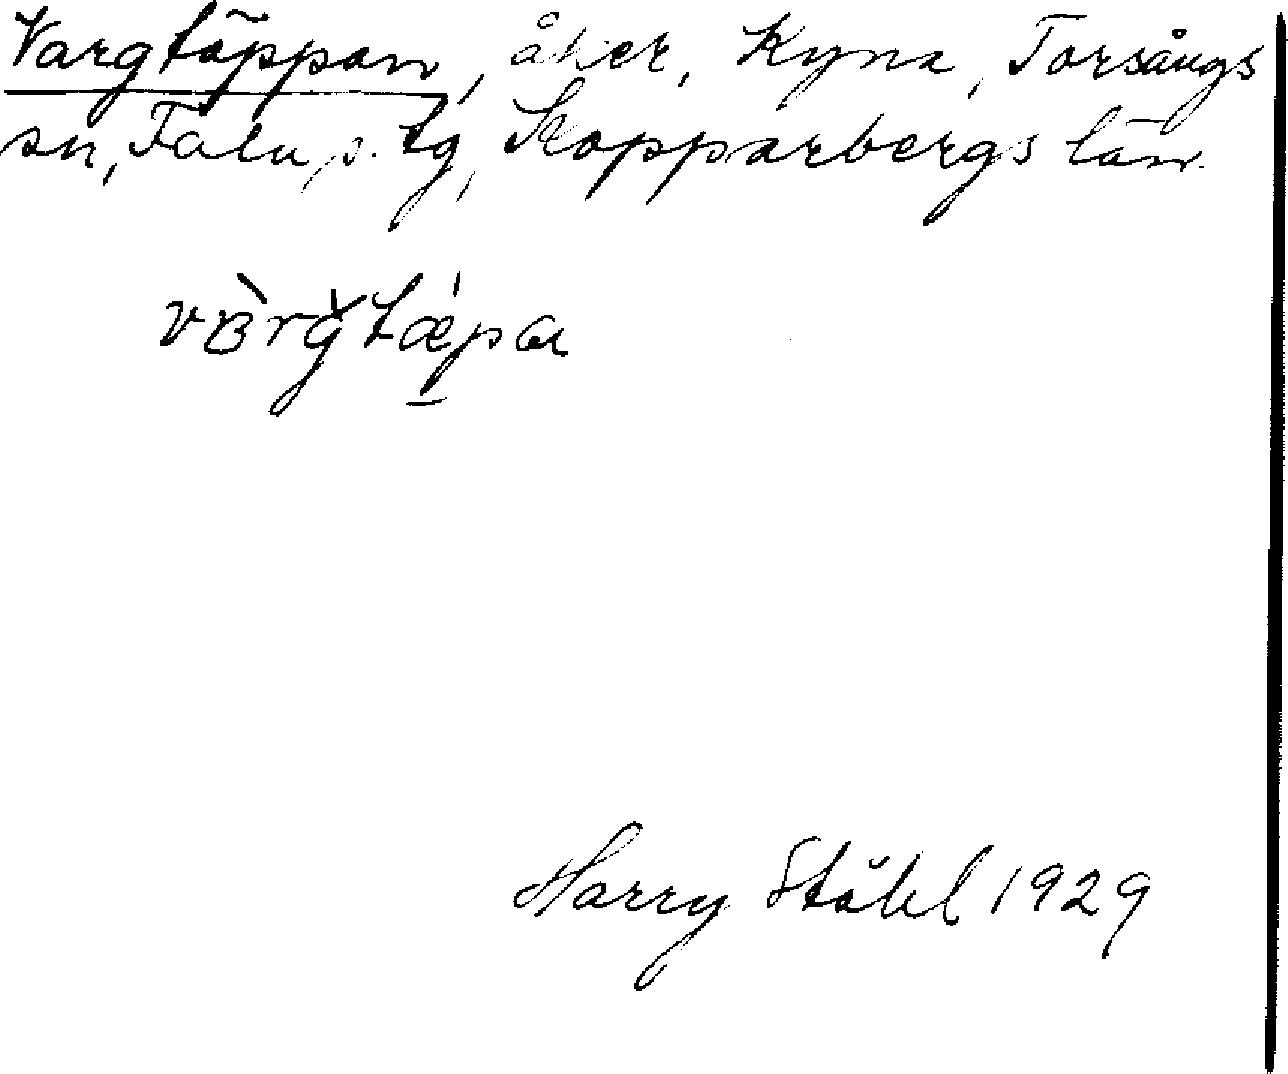 Vargtäppan, åker, Kyna, Torsångs
sn, Falu s. tg, Kopparbergs län.
vàrgtǽpa
Harry Ståhl 1929